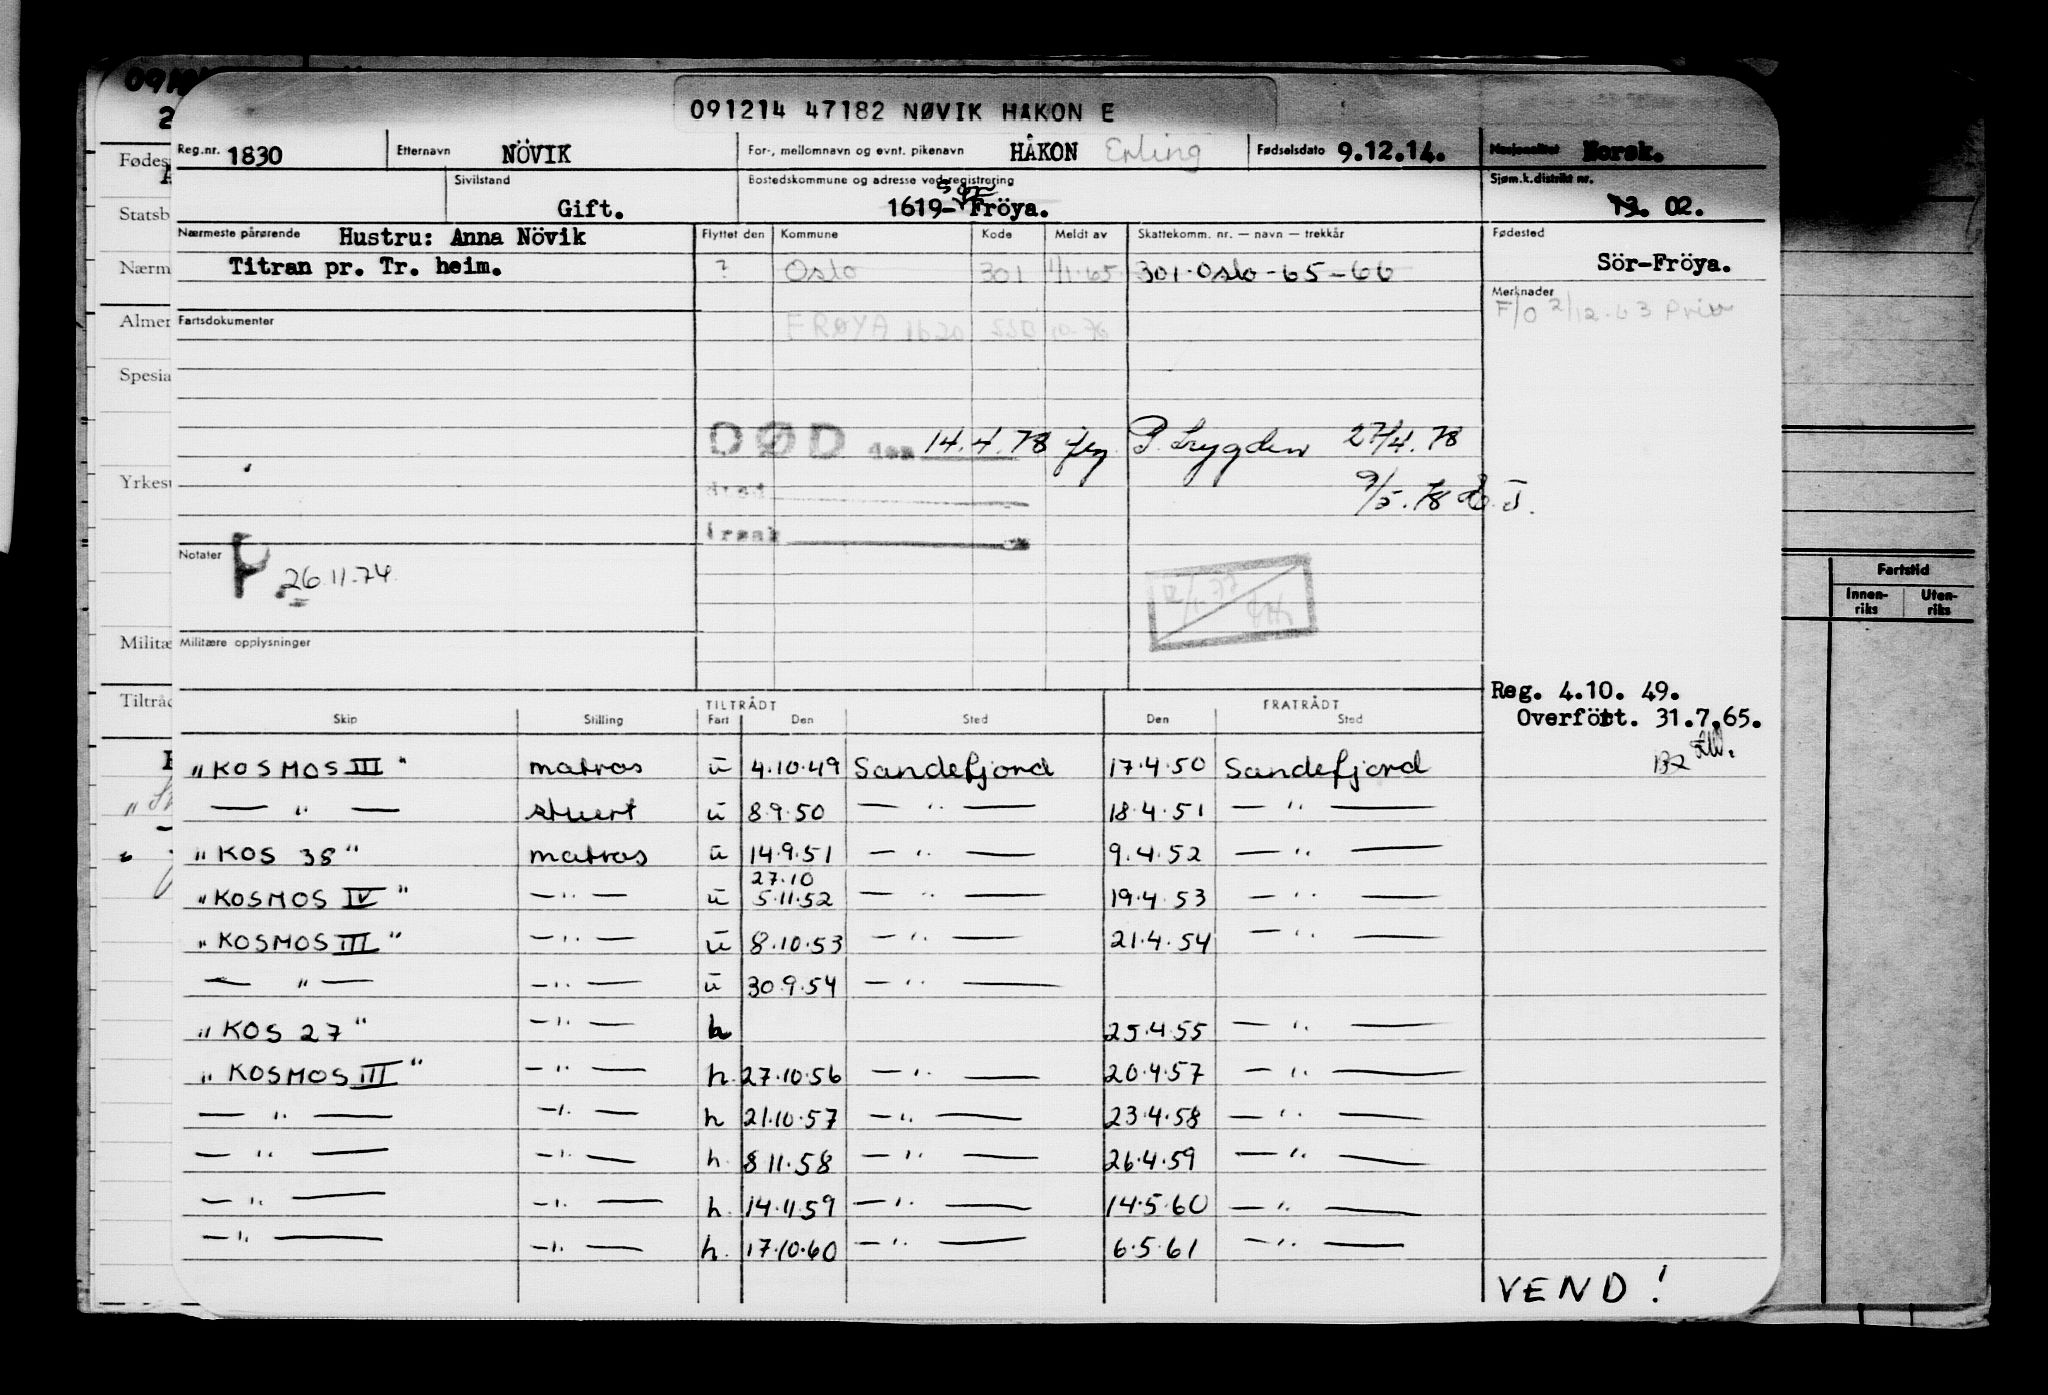 091214 47182 NØVIK HAKON E
Reg.nr. 1830 Etternavn NÖVIK For-, mellomnavn og evnt. pikenavn HÅKON Erling Fødselsdato 9.12.14. Nasjonalitet Norsk.
Sivilstand Gift. Bostedskommune og adresse ved registrering 1619- Fröya. Sjøm.k.distrikt nr. 13. 02.
Nærmeste pårørende Hustru: Anna Növik Flyttet den Kommune Kode Meldt av Skattekomm. nr. — navn — trekkår Fødested
Titran pr. Tr. heim. ? Oslo 301 1/1-65 301-Oslo-65-66 Sör-Fröya.
Merknader
F/O 2/12-63 Priv
Fartsdokumenter FRØYA 1620 SSB 10-76
DØD den 14.4.78 27/4.78
sted 9/5.78
årsak
Notater 26.11.74
Militære opplysninger
Reg. 4.10. 49.
Overfört. 31.7.65.
TILTRÅDT FRATRÅDT
Skip Stilling Fart Den Sted Den Sted
"KOSMOS III" matros u 4.10.49 Sandefjord 17.4.50 Sandefjord
— " — stuert u 8.9.50 — " — 18.4.51 — " —
"KOS 38" matros u 14.9.51 — " — 9.4.52 — " —
27.10
"KOSMOS IV" — " — u 5.11.52 — " — 19.4.53 — " —
"KOSMOS III" — " — u 8.10.53 — " — 21.4.54 — " —
— " — — " — u 30.9.54 — " —
"KOS 27" — " — h 25.4.55 — " —
"KOSMOS III" — " — h. 27.10.56 — " — 20.4.57 — " —
— " — — " — h 21.10.57 — " — 23.4.58 — " —
— " — — " — h. 8.11.58 — " — 26.4.59 — " —
— " — — " — h. 14.11.59 — " — 14.5.60 — " —
— " — — " — h. 17.10.60 — " — 6.5.61 — " —
VEND!
Fartstid
Innen-riks Uten-riks